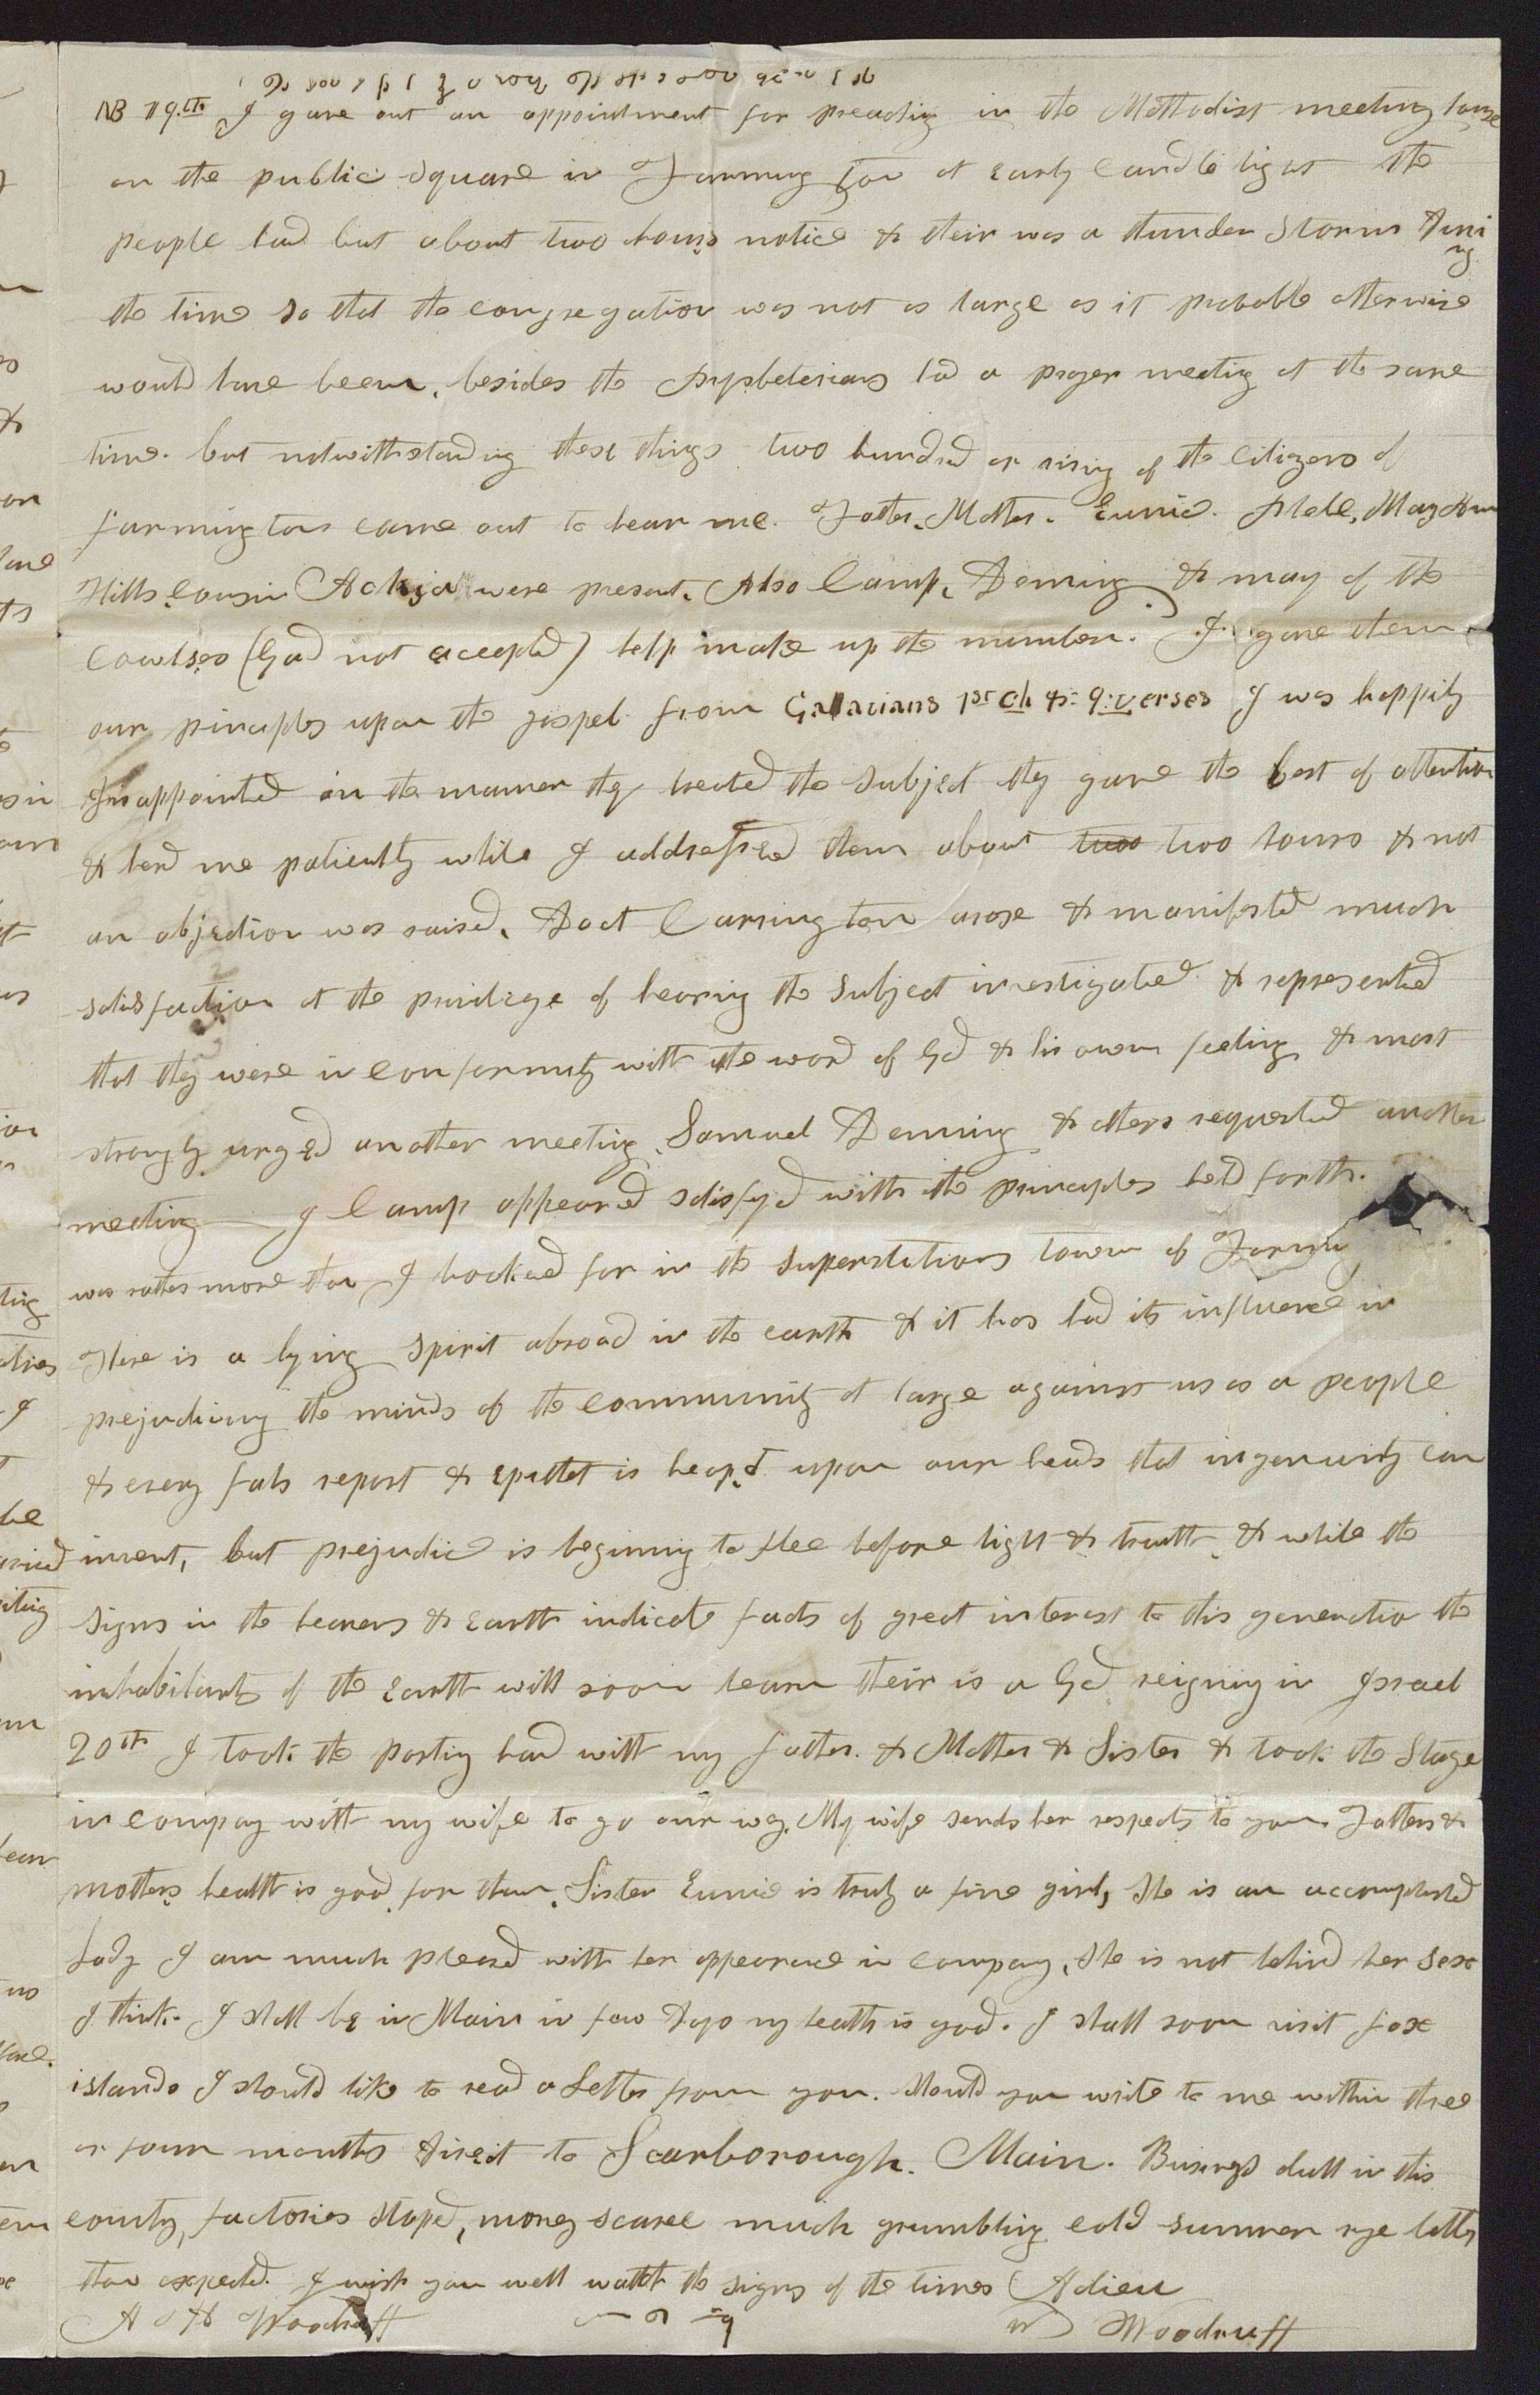 NB 19.th I gave out an appointment for preaching in the Methodist meeting house
on the public square in Farmington at early candle light the
people had but about two hours notice & their was a thunder storm duri
ng
the time so that the congregation was not as large as it probable otherwise
would have been, besides the Prysbeterians had a prayer meeting at the same
time. but notwithstanding these things two hundred or rising of the citizens of
farmington came out to hear me. Father. Mother. Eunice. Mary Ann
Hills, Cousin were present, Also Camp, Deming & many of the
Cowlses (Gad not accepted) help make up the number. I gave them
our principles upon the gospel from Galatians 1st ch & 9:verses I was happily
disappointed in the manner they treated the subject they gave the best of attention
& herd me patiently while I addressed them about two two hours & not
an objection was raised, Doct Carrington arose & manifested much
satisfaction at the privilege of hearing the subject investigated & represented
that they were in conformity with the word of God & his own feeling & most
strongly urged another meeting, Samuel Deming & others requested another
meeting J Camp appeared satisfyed with the principles held forth.
was rather more than I looked for in the superstitious town of Farmin
There is a lying spirit abroad in the earth & it has had its influence in
prejudicing the minds of the community at large against us as a people
& every fals report & epithet is heap,d upon our heads that ingenuity can
invent, but prejudice is begining to flee before light & truth, & while the
signs in the heavens & Earth indicate facts of great interest to this generation the
inhabitants of the Earth will soon learn their is a God reigning in Israel
20th I took the parting hand with my father. & Mother & Sister & took the Stage
in company with my wife to go our way. My wife sends her respects to you. Fathers &
mothers health is good for them, Sister Eunice is truly a fine girl, She is an accomplished
Lady I am much pleased with her appearance in company, She is not behind her sex
I think. I shall be in Main in few days my health is good. I shall soon visit fox
islands I should like to read a letter from you. Should you write to me within three
or four months direct to Scarborough. Main. Business dull in this
county, factories stoped, money scarce much grumbling cold summer rye better
than expected. I wish you well watch the signs of the times Adieu
A H Woodruff W Woodruff